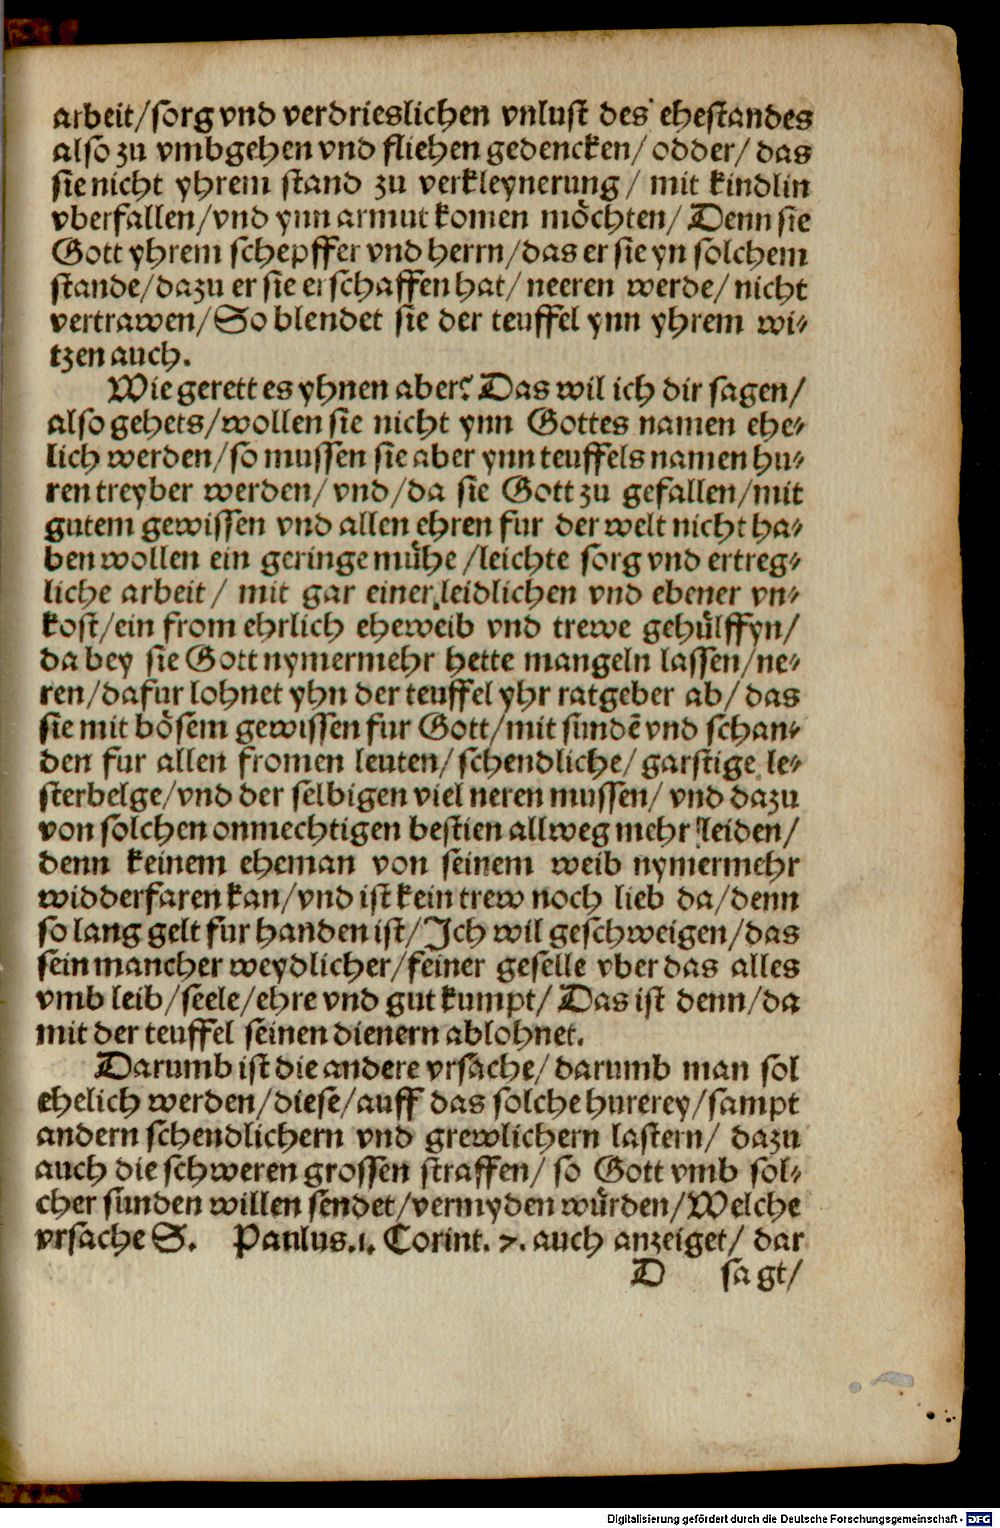 arbeit/sorg vnd verdrieslichen vnlust des ehestandes
also zu vmbgehen vnd fliehen gedencken/ odder/ das
sie nicht yhrem stand zu verkleynerung/ mit kindlin
vberfallen/vnd ynn armut komen möchten/ Denn sie
Gott yhrem schepffer vnd herrn/das er sie yn solchem
stande/dazu er sie erschaffen hat/ neeren werde/ nicht
vertrawen/So blendet sie der teuffel ynn yhrem wi-
tzen auch.
Wie gerett es yhnen aber? Das wil ich dir sagen/
also gehets/wollen sie nicht ynn Gottes namen ehe-
lich werden/so mussen sie aber ynn teuffels namen hu-
ren treyber werden/ vnd/da sie Gott zu gefallen/mit
gutem gewissen vnd allen ehren fur der welt nicht ha-
ben wollen ein geringe mühe/leichte sorg vnd ertreg-
liche arbeit/ mit gar einer leidlichen vnd ebener vn-
kost/ein from ehrlich eheweib vnd trewe gehülffyn/
da bey sie Gott nymermehr hette mangeln lassen/ne-
ren/dafur lohnet yhn der teuffel yhr ratgeber ab/ das
sie mit bösem gewissen fur Gott/mit sundē vnd schan-
den fur allen fromen leuten/schendliche/garstige le-
sterbelge/vnd der selbigen viel neren mussen/ vnd dazu
von solchen onmechtigen bestien allweg mehr leiden/
denn keinem eheman von seinem weib nymermehr
widderfaren kan/vnd ist kein trew noch lieb da/denn
so lang gelt fur handen ist/Ich wil geschweigen/das
sein mancher weydlicher/feiner geselle vber das alles
vmb leib/seele/ehre vnd gut kumpt/ Das ist denn/da
mit der teuffel seinen dienern ablohnet.
Darumb ist die andere vrsache/ darumb man sol
ehelich werden/diese/auff das solche hurerey/sampt
andern schendlichern vnd grewlichern lastern/ dazu
auch die schweren grossen straffen/ so Gott vmb sol-
cher sunden willen sendet/vermyden würden/Welche
vrsache S. Paulus.1. Corint. 7. auch anzeiget/ dar
D sagt/
Digitalisierung gefördert durch die Deutsche Forschungsgemeinschaft - DFG